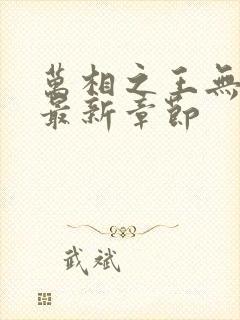 萬相之王無
最新章節
武斌